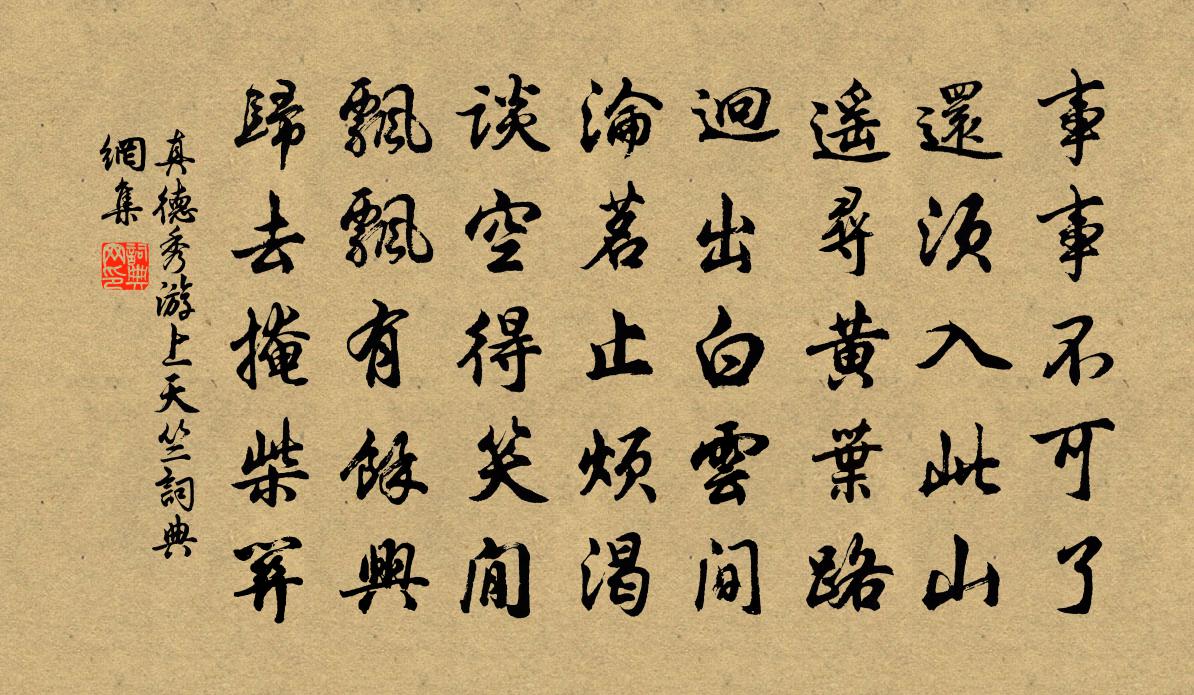 事事不可了
還湏入此山
遥尋黄葉路
逈出白雲間
淪茗止煩渴
談空得笑閒
飄飄有餘興
歸去掩柴関
真德秀游上天竺詞典
網集
詞典
网印